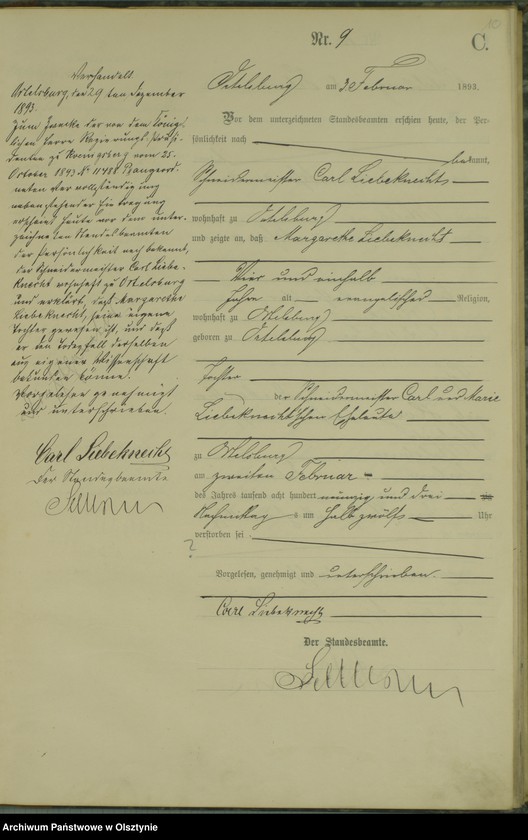 Nr. 9
C.
Ortelsburg am 3 Februar 1893.
Vor dem unterzeichneten Standesbeamten erschien heute, der Per-
sönlichkeit nach
bekannt,
Schneidermeister Carl Liebeknecht
wohnhaft zu Ortelsburg
und zeigte an, daß Margarethe Liebeknecht
Vier und einhalb
Jahre alt evangelischer Religion,
wohnhaft zu Ortelsburg
geboren zu Ortelsburg
Tochter
der Schneidermeister Carl und Marie
Liebeknechtschen Eheleute
zu Ortelsburg
am zweiten Februar
des Jahres tausend acht hundert neunzig und drei
Nachmittag s um halb zwölf Uhr
verstorben sei
Vorgelesen, genehmigt und unterschrieben.
Carl Liebeknecht
Der Standesbeamte.
Verhandelt
Ortelsburg, den 29 ten Dezember
1893.
Zum Zwecke der von dem König-
lichen Herrn Regierungs-Präsi-
denten zu Koenigsberg vom 25.
October 1893 angeord-
neten Vervollständigung
nebenstehender Eintragung
erscheint heute vor dem unter-
zeichneten Standesbeamten
der Persönlichkeit nach bekannt,
der Schneidermeister Carl Liebe-
knecht wohnhaft zu Ortelsburg
und erklärt, daß Margarethe
Liebeknecht, seine eigene
Tochter gewesen ist, und daß
er den Todesfall derselben
aus eigener Wissenschaft
bekunden könne.
Vorgelesen genehmigt
und unterschrieben.
Carl Liebeknecht
Der Standesbeamte
Archiwum Państwowe w Olsztynie